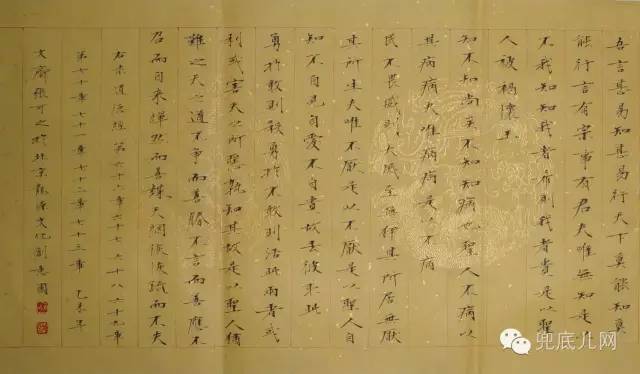 吾言甚易知甚易行天下莫能知莫
能行言有宗事有君夫唯無知是以
不我知知我者希則我者貴是以聖
人被褐懷玉
知不知尚矣不知知病也聖人不病以
其病病夫唯病病是以不病
民不畏威則大威至無狎其所居無厭
其所生夫唯不厭是以不厭是以聖人自
知不自見自愛不自貴故去彼取此
勇於敢則殺勇於不敢則活此兩者或
利或害天之所惡孰知其故是以聖人猶
難之天之道不爭而善勝不言而善應不
召而自來繟然而善謀天網恢恢疏而不失
右录道德經第六十六章六十七六十八六十九章
第七十章七十一章七十二章七十三章 乙未年
文齋張可之於北京龍潭文化創意園
兜底儿网